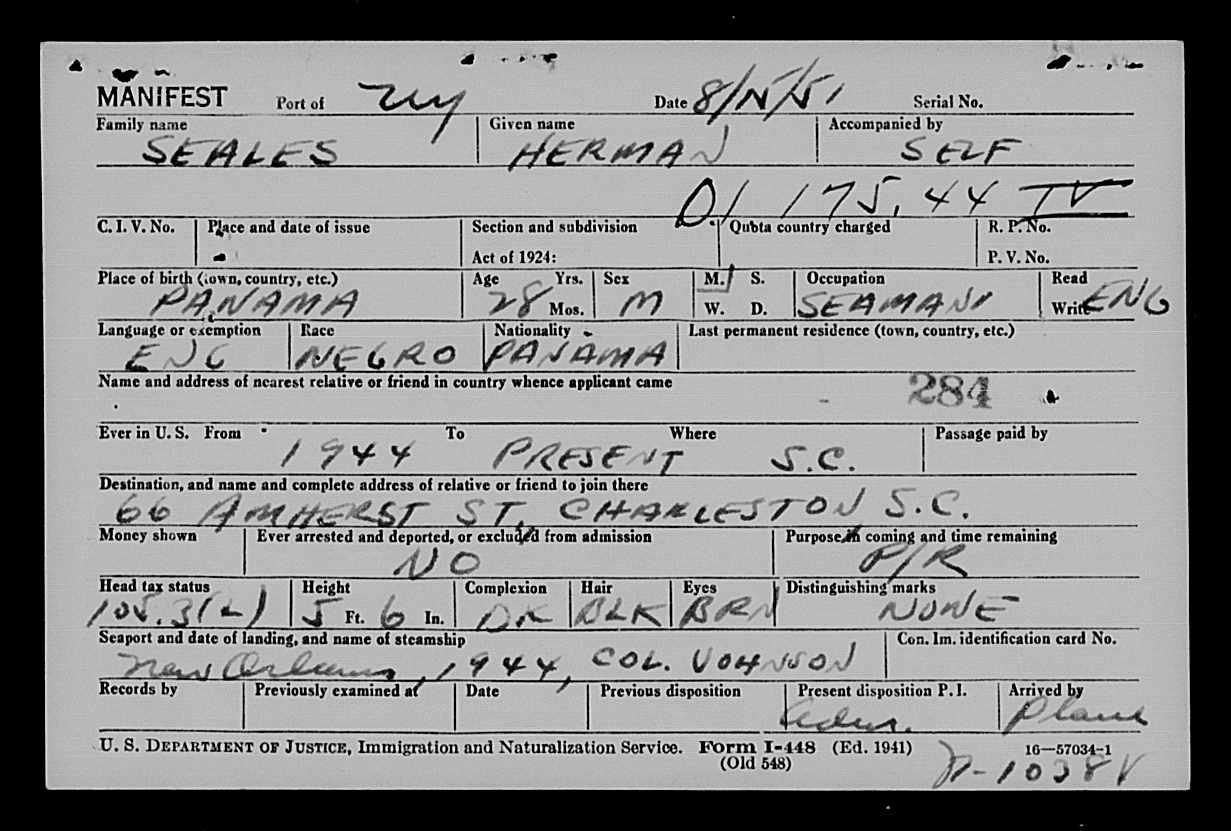 MANIFEST Port of NY Date 8/15/51 Serial No.
Family name Given name Accompanied by
SEALES HERMAN SELF
175.44 IV
C. I. V. No. Place and date of issue Section and subdivision Quota country charged R. P. No.
Act of 1924: P. V. No.
Place of birth (town, country, etc.) Age Yrs. Sex M. S. Occupation Read
PANAMA 28 Mos. M W. D. SEAMAN Write ENG
Language or exemption Race Nationality Last permanent residence (town, country, etc.)
ENG NEGRO PANAMA
Name and address of nearest relative or friend in country whence applicant came
284
Ever in U. S. From To Where Passage paid by
1944 PRESENT S.C.
Destination, and name and complete address of relative or friend to join there
66 AMHERST ST, CHARLESTON S.C.
Money shown Ever arrested and deported, or excluded from admission Purpose in coming and time remaining
NO P/R
Head tax status Height Complexion Hair Eyes Distinguishing marks
105.3(2) 5 Ft. 6 In. DK BLK BRN NONE
Seaport and date of landing, and name of steamship Con. Im. identification card No.
New Orleans, 1944, COL. JOHNSON
Records by Previously examined at Date Previous disposition Present disposition P. I. Arrived by
Adm. Plane
U. S. DEPARTMENT OF JUSTICE, Immigration and Naturalization Service. Form I-448 (Ed. 1941) 16—57034-1
(Old 548)